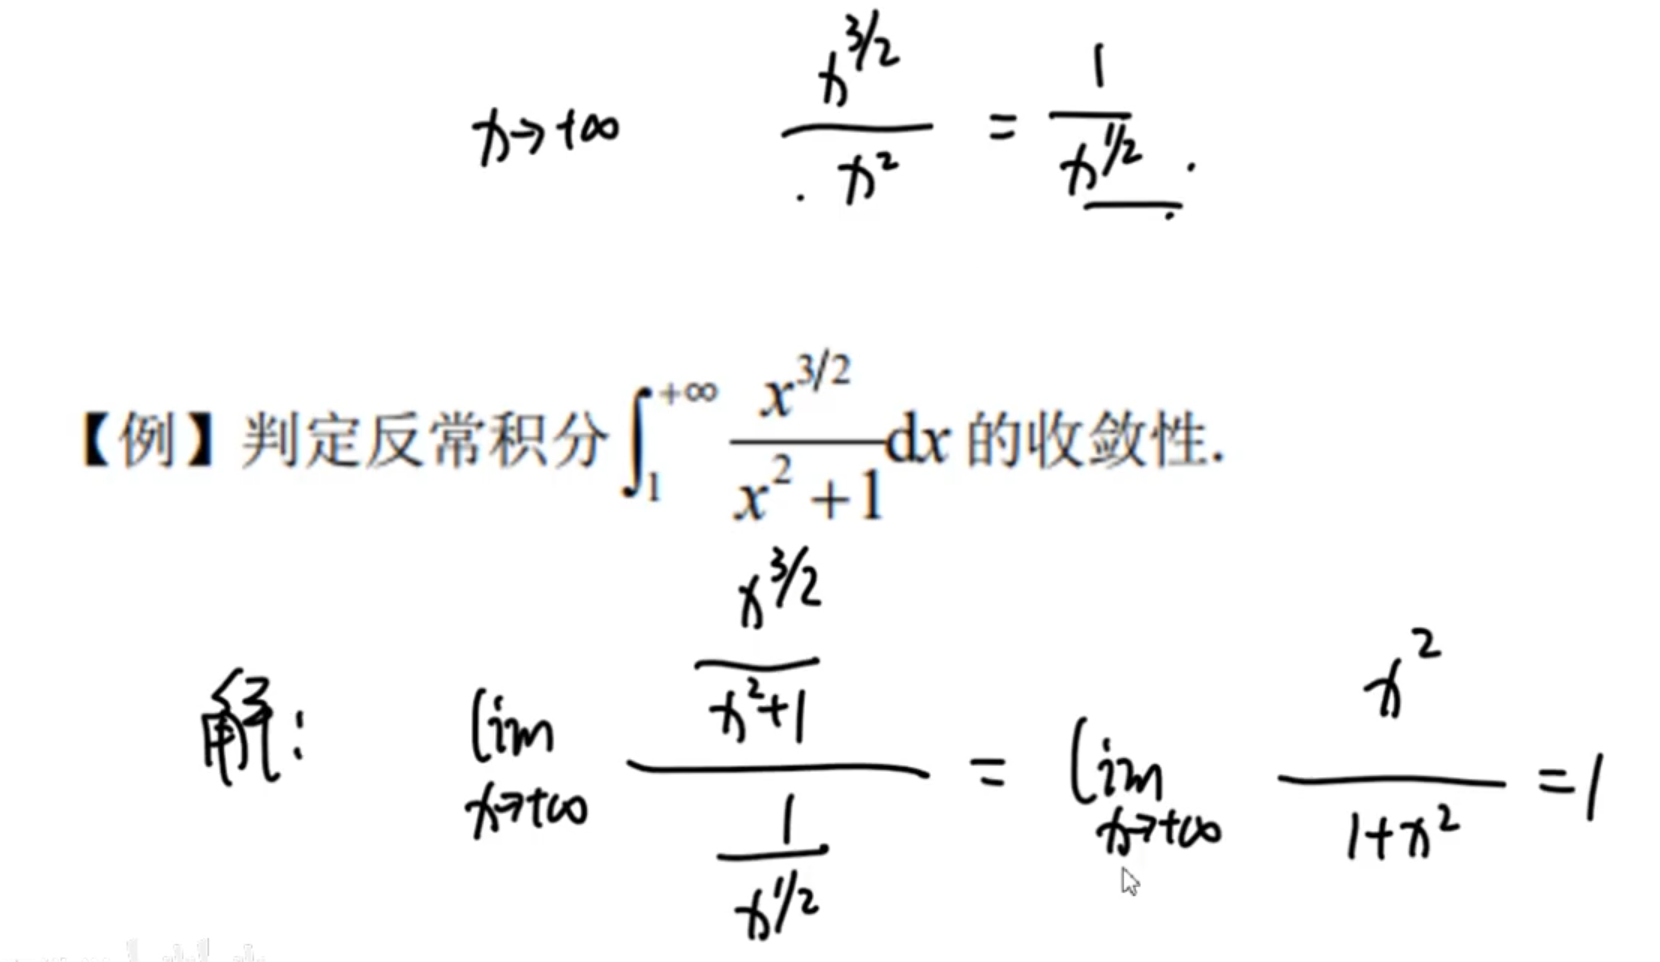 x→+∞ x^{3/2}/x² = 1/x^{1/2}
【例】判定反常积分∫₁^{+∞} x^{3/2}/(x²+1) dx 的收敛性.
解: lim_{x→+∞} (x^{3/2}/(x²+1))/(1/x^{1/2}) = lim_{x→+∞} x²/(1+x²) = 1